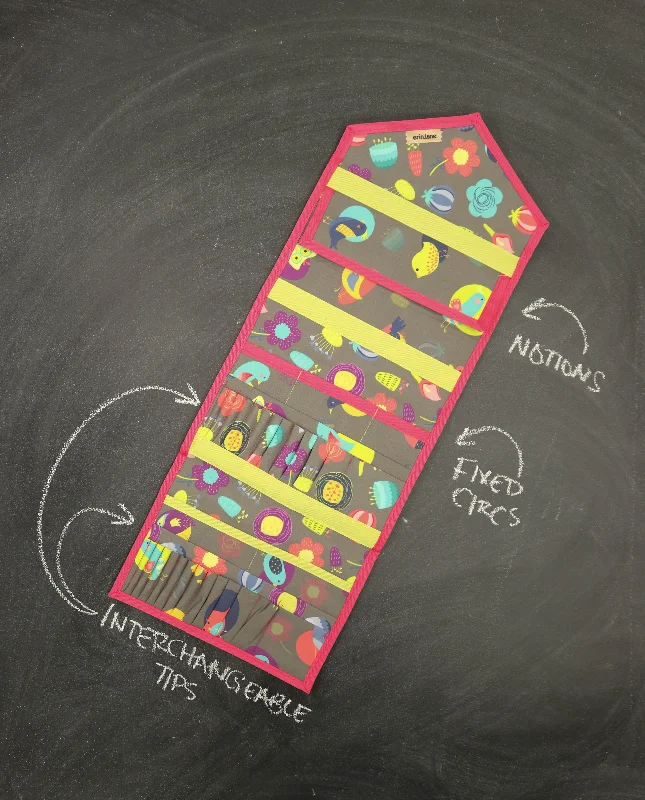 erin.lane
NOTIONS
FIXED
CIRCS
INTERCHANGEABLE
TIPS